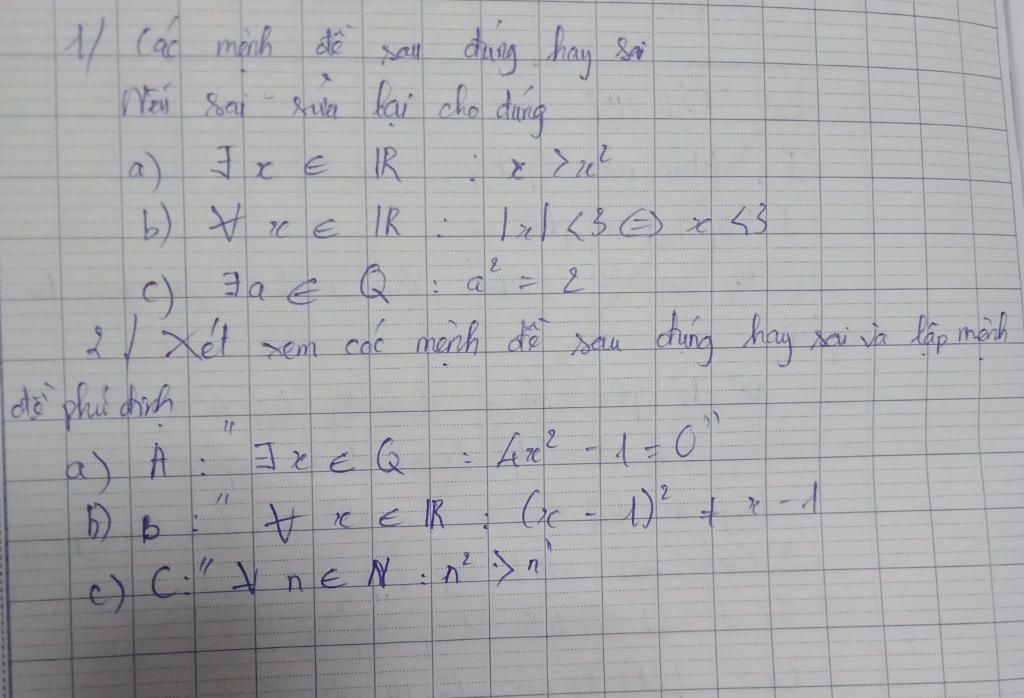 1/ Các mệnh đề sau đúng hay sai
Nếu sai sửa lại cho đúng
a) ∃ x ∈ ℝ : x > x²
b) ∀ x ∈ ℝ : |x| < 3 ⇔ x < 3
c) ∃ a ∈ Q : a² = 2
2/ Xét xem các mệnh đề sau đúng hay sai và lập mệnh
đề phủ định
a) A : "∃ x ∈ Q : 4x² - 1 = 0"
b) b : "∀ x ∈ ℝ : (x - 1)² ≠ x - 1
c) C : "∀ n ∈ N : n² > n"